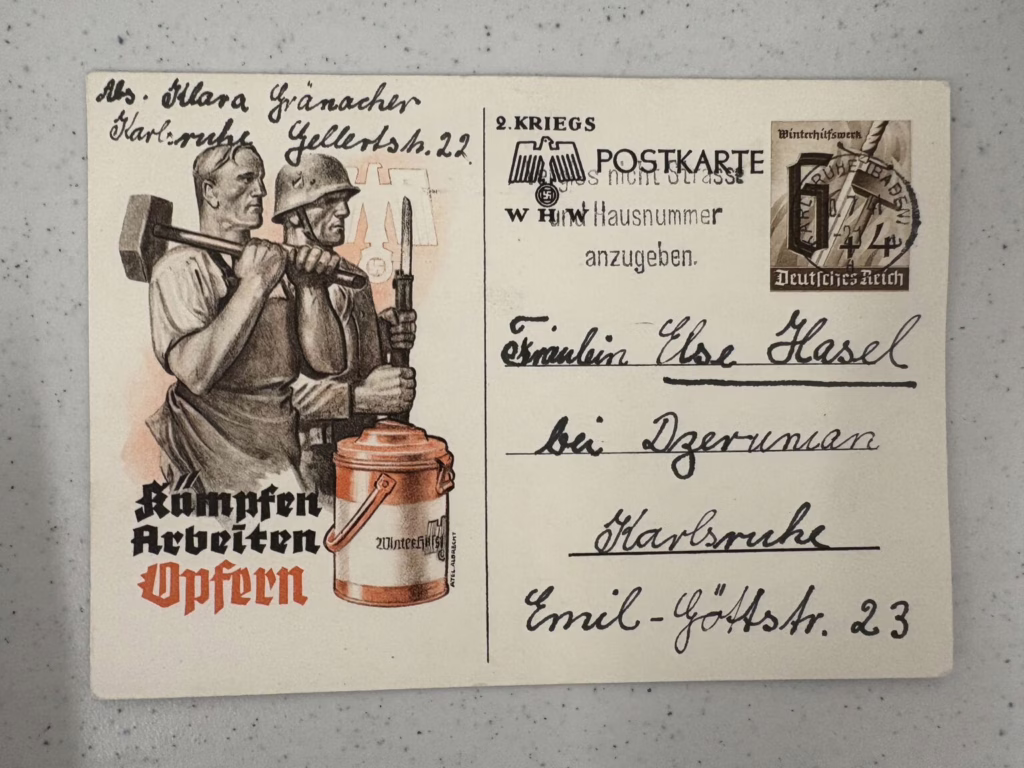 Abs. Klara Gränacher
Karlsruhe Gellertstr. 22.
Kämpfen
Arbeiten
Opfern
Winterhilfs
ATEL. ALBRECHT
2. KRIEGS
POSTKARTE
WHW
nicht Strasse
und Hausnummer
anzugeben.
Winterhilfswerk
6+4
Deutsches Reich
KARLSRUHE (BADEN)
Fräulein Else Hasel
bei Dzerunian
Karlsruhe
Emil-Göttstr. 23